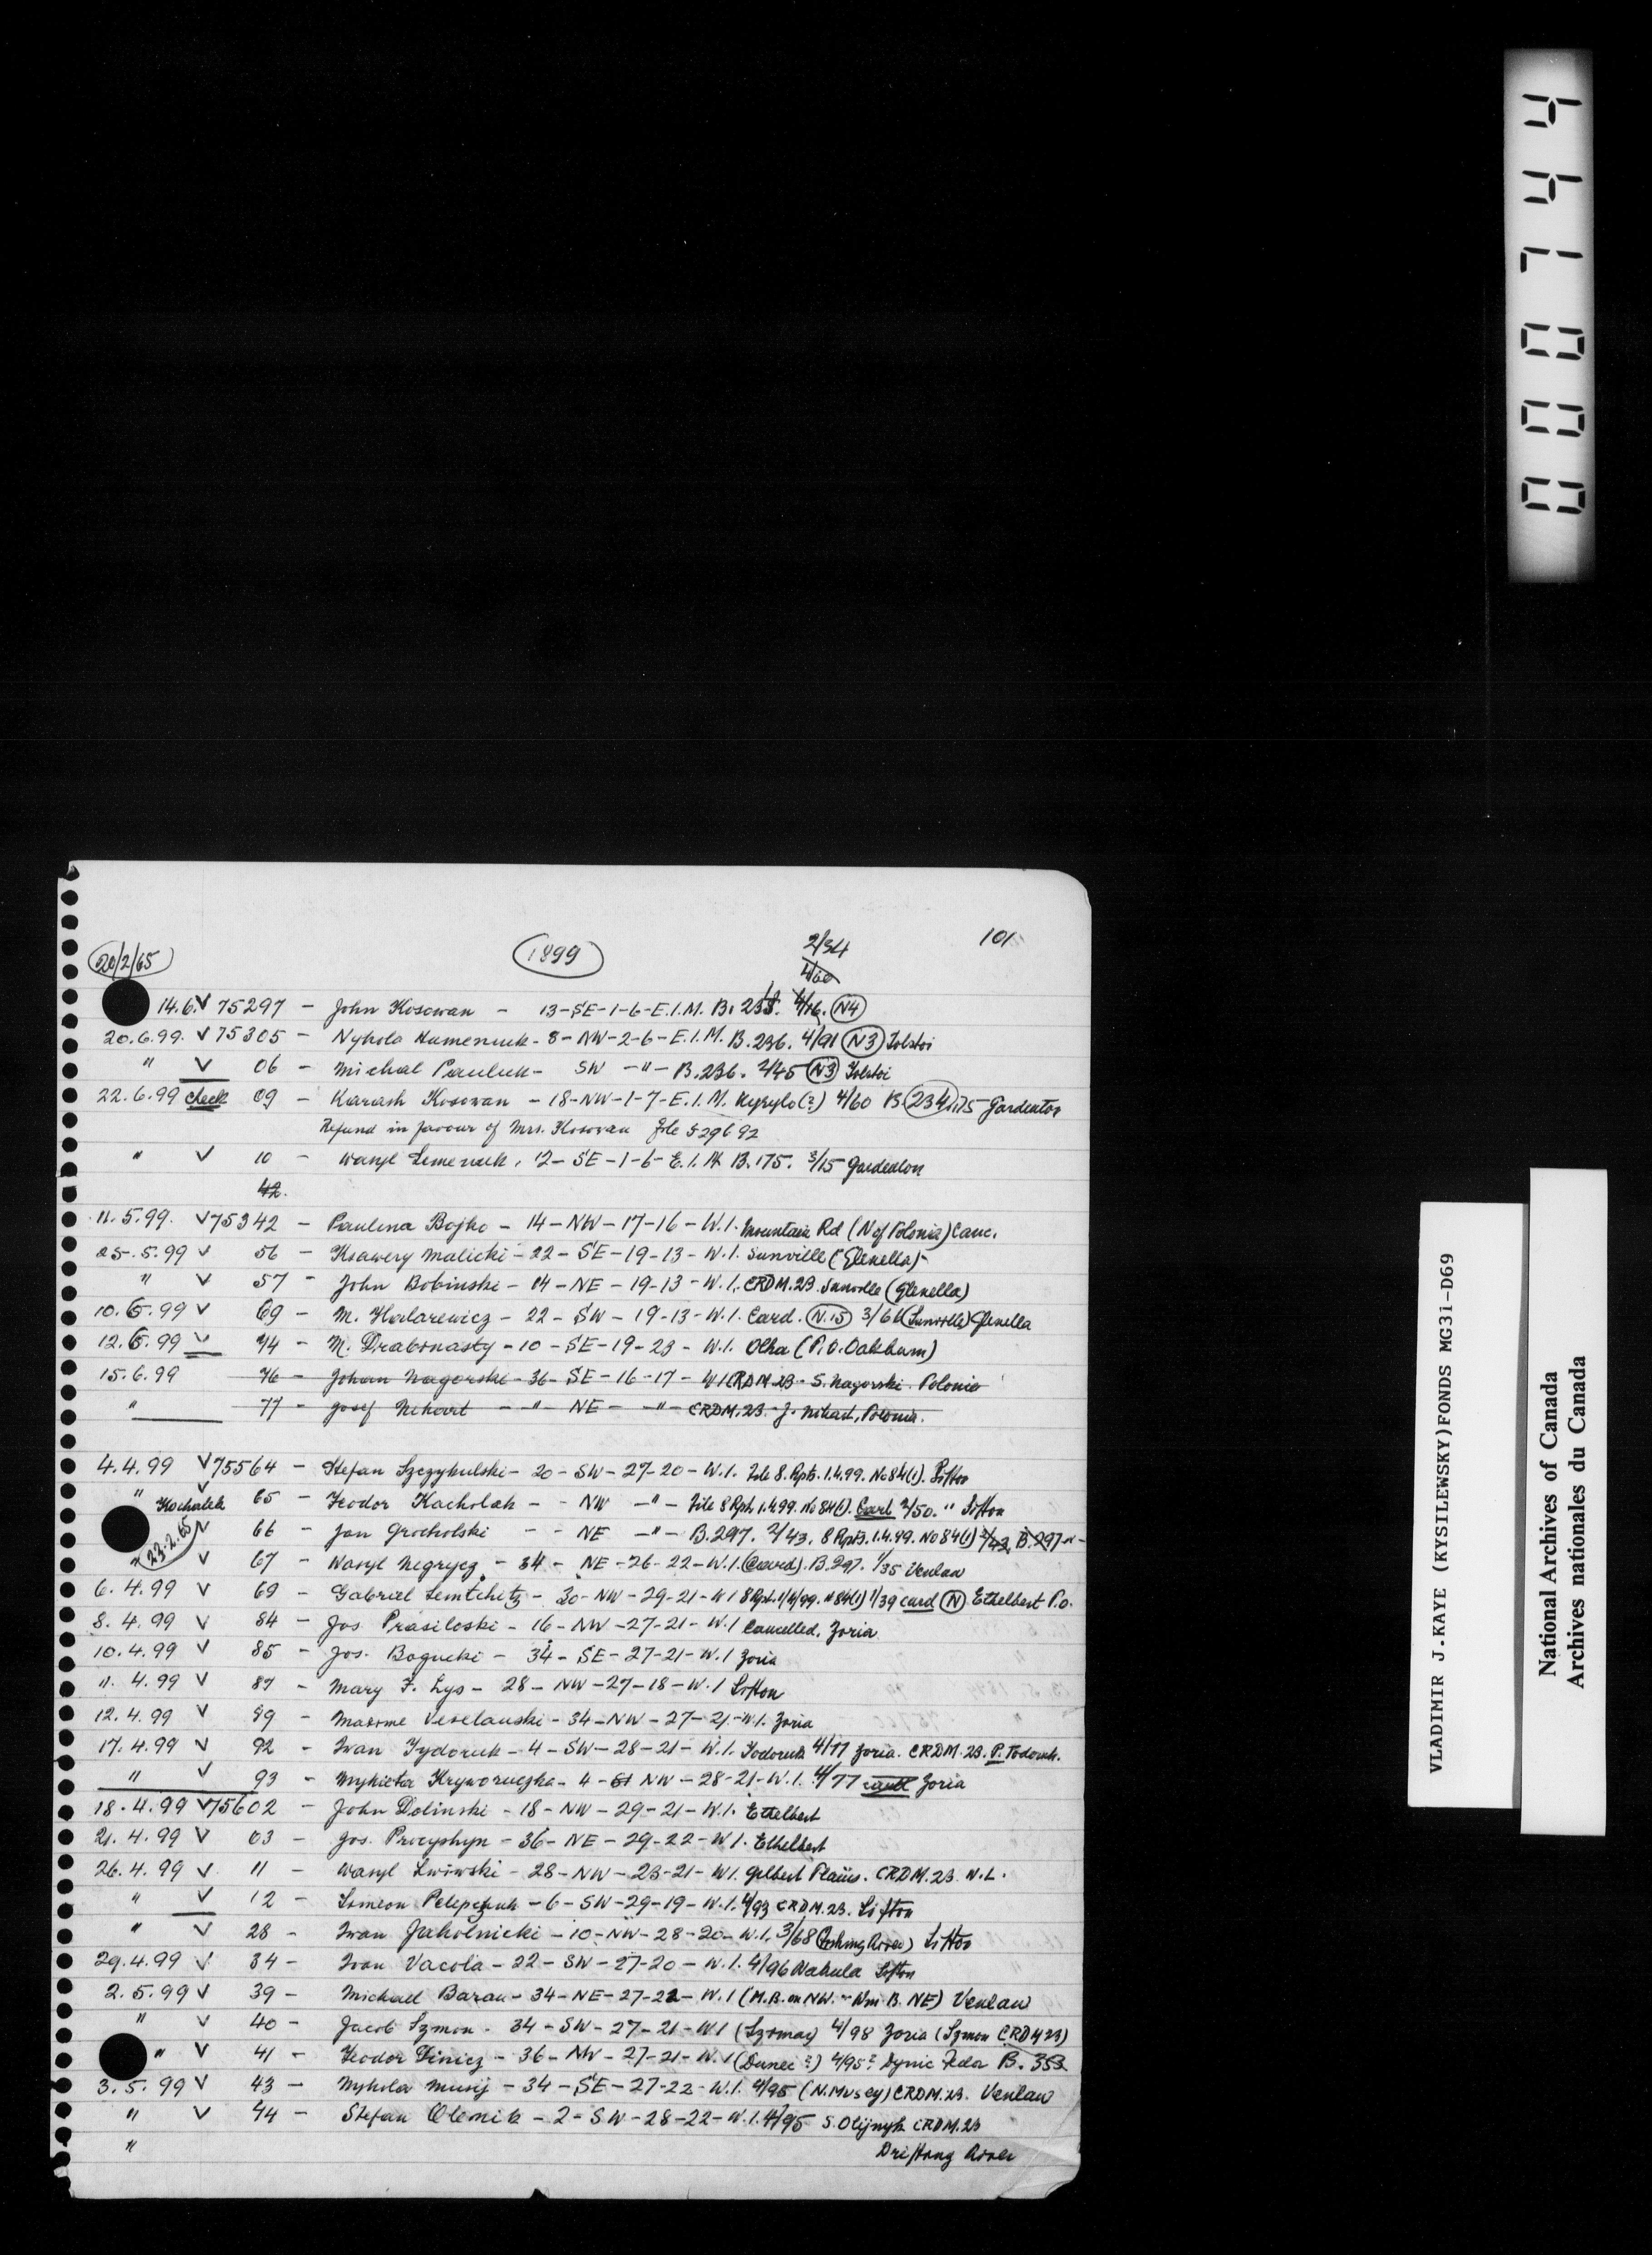 447000
VLADIMIR J.KAYE (KYSILEWSKY)FONDS MG31-D69
National Archives of Canada
Archives nationales du Canada
20/2/65 1899 2/34 101
4/60
14.6. V 75297 - John Kosowan - 13-SE-1-6-E.1.M. B. 4/16. N4
20.6.99. V 75305 - Nykola Kumeniuk - 8-NW-2-6-E.1.M. B.236. 4/91 N3 Tolstoi
" V 06 - Michal Pauluk - SW -"- B.236. 2/45 N3 Tolstoi
22.6.99 check 09 - Karash Kosowan - 18-NW-1-7-E.1.M. Kyrylo(?) 4/60 B 234 175 Gardenton
Refund in favour of Mrs. Kosowan File 529692
" V 10 - Wasyl Semeniuk, 12-SE-1-6-E.1.M B.175. 3/15 Gardenton
42.
11.5.99. V 75342 - Paulina Bojko - 14-NW-17-16-W.1. Mountain Rd (N of Polonia) Canc.
25.5.99 V 56 - Ksawery Malicki - 22-SE-19-13-W.1. Sunville (Glenella)-
" V 57 - John Bobinski - 14-NE-19-13-W.1. CRDM.23 Sunville (Glenella)
10.6.99 V 69 - M. Hodarewicz - 22-SW-19-13-W.1. Card. N.15 3/61 (Sunville) Glenella
12.6.99 V 74 - M. Drabonasty - 10-SE-19-23-W.1. Olha (P.O. Oakburn)
15.6.99 76 - Johan Nagorski - 36-SE-16-17-W1 CRDM.23 - S. Nagorski. Polonia
" 77 - Josef Nehart - " - NE - " - CRDM.23 - J. Nikart, Polonia.
4.4.99 V 75564 - Stefan Szczykulski - 20-SW-27-20-W.1. File 8. Rpts. 1.4.99. No84(1). Sifton
" Kochalek V 65 - Teodor Kacholak - - NW -"- File 8 Rpts 1.4.99. No 84(1). Card 2/50. " Sifton
V 66 - Jan Grocholski - - NE -"- B.297. 2/43. 8 Rpts. 1.4.99. No 84(1) 2/43, B.297 -"-
" 23.2.65 V 67 - Wasyl Negrycz - 34 - NE-26-22-W.1. (Card). B.297. 1/35 Venlaw
6.4.99 V 69 - Gabriel Semtchitz - 30-NW-29-21-W1 8 Rpt. 1/4/99. #84(1) 1/39 card N Ethelbert P.O.
8.4.99 V 84 - Jos. Prasiloski - 16-NW-27-21-W.1 Cancelled. Zoria
10.4.99 V 85 - Jos. Bogucki - 34-SE-27-21-W.1 Zoria
11.4.99 V 87 - Mary F. Lys - 28-NW-27-18-W.1 Sifton
12.4.99 V 89 - Maxime Veselauski - 34-NW-27-21-W.1. Zoria
17.4.99 V 92 - Iwan Fydoruk - 4-SW-28-21-W.1. Fodoruk 4/77 Zoria. CRDM.23. P. Fodoruk.
" V 93 - Mykieta Kryworuczka - 4- NW-28-21-W.1. 4/77 Zoria
18.4.99 V 75602 - John Dolinski - 18-NW-29-21-W.1. Ethelbert
21.4.99 V 03 - Jos. Procyshyn - 36-NE-29-22-W1. Ethelbert
26.4.99 V 11 - Wasyl Lwiwski - 28-NW-23-21-W1. Gilbert Plains. CRDM.23 N.L.
" V 12 - Simeon Pelepczuk - 6-SW-29-19-W.1. 4/93 CRDM.23. Sifton
" V 28 - Iwan Jakolnicki - 10-NW-28-20-W.1. 3/68 (Fishing River) Sifton
29.4.99 V 34 - Ivan Vacola - 22-SW-27-20-W.1. 4/96 Wakula Sifton
2.5.99 V 39 - Michael Baran - 34-NE-27-22-W.1 (M.B. on NW. - Wm B. NE) Venlaw
" V 40 - Jacob Szmon - 34-SW-27-21-W1 (Szomay) 4/98 Zoria (Szmon CRDM23)
" V 41 - Teodor Dinicz - 36-NW-27-21-W.1 (Dunec?) 4/95? Dynic Fedor B.353
3.5.99 V 43 - Mykola Musij - 34-SE-27-22-W.1. 4/95 (N. Musey) CRDM.23. Venlaw
" V 44 - Stefan Olenik - 2-SW-28-22-W.1. 4/95 S. Olijnyk CRDM.23
" Drifting River